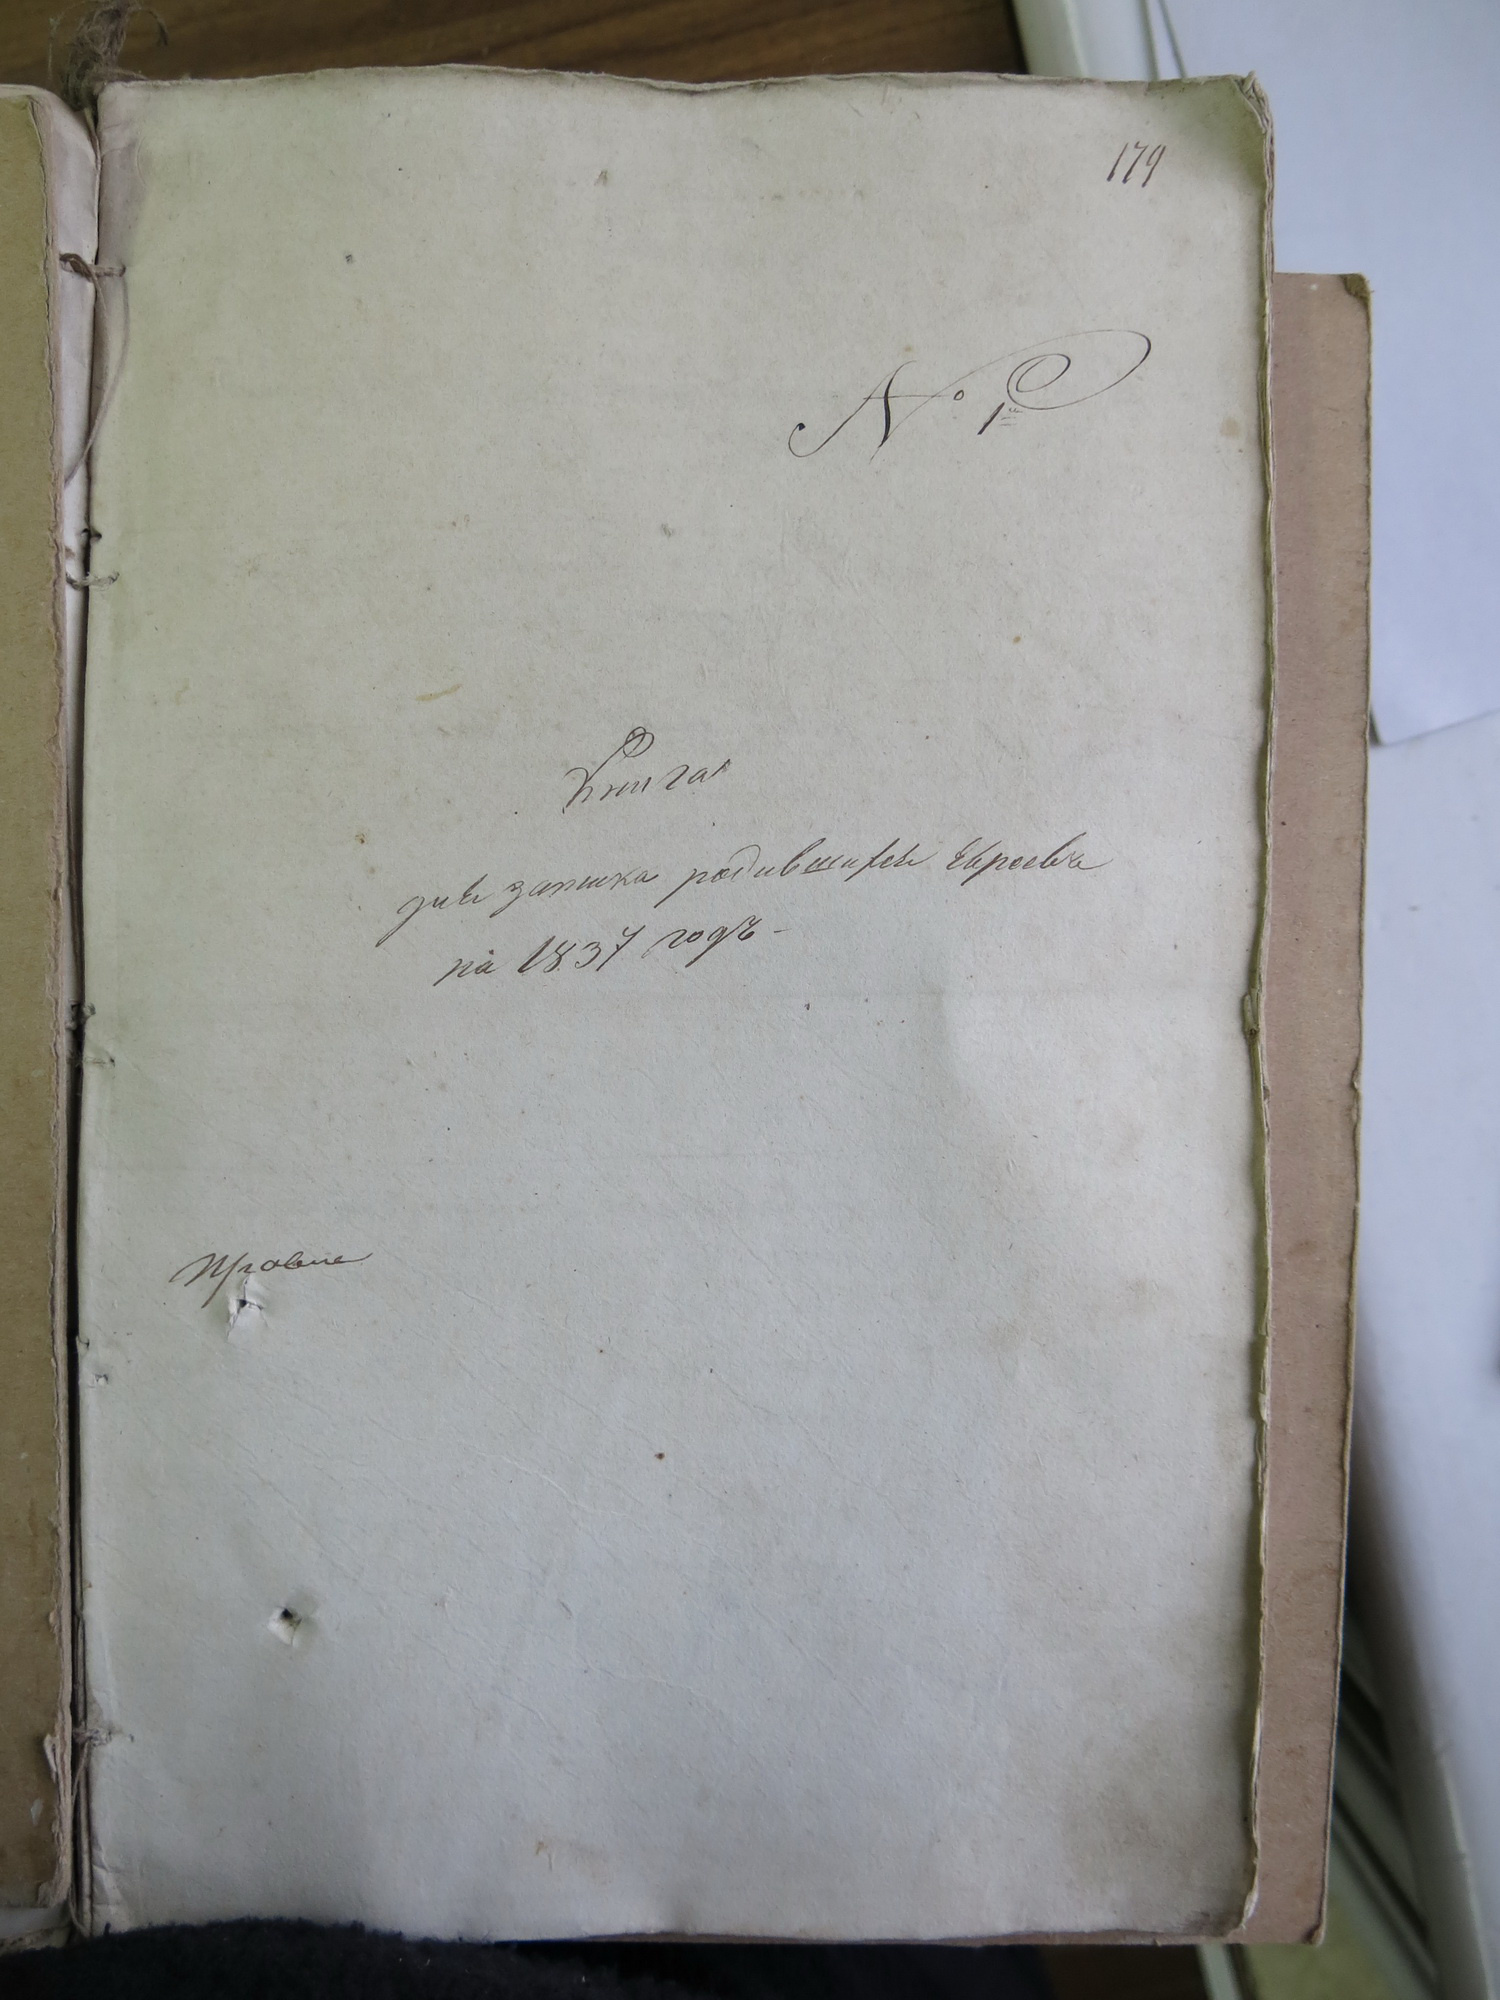 179
№ 1й
Книга
для записка родившихся Евреевъ
на 1837 годъ -